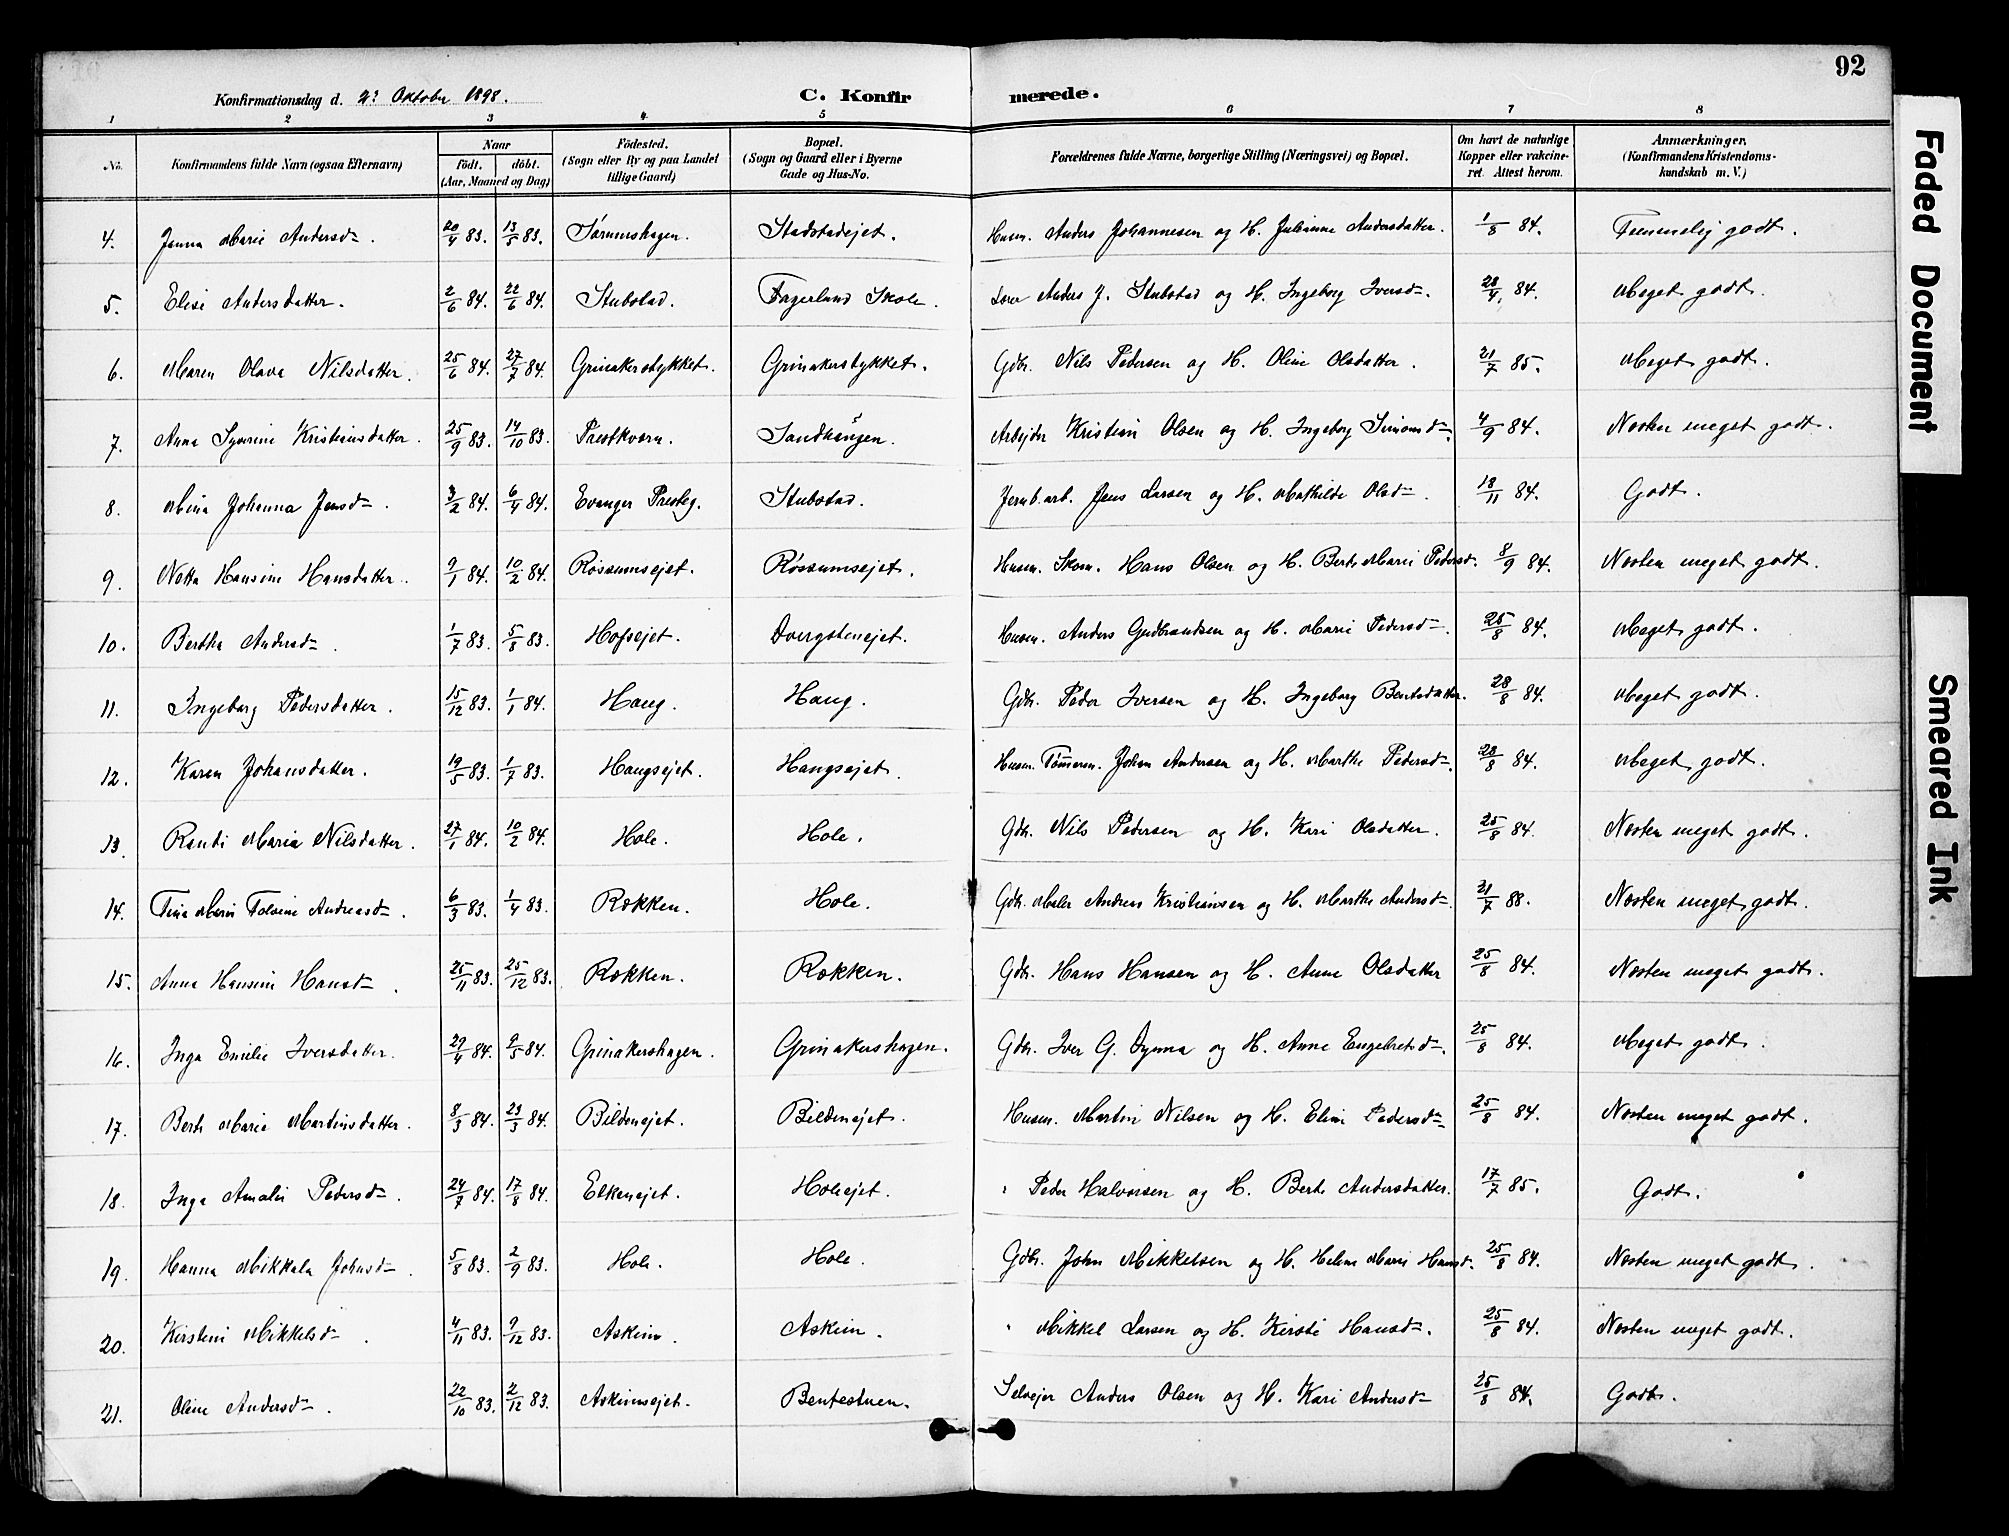 92
Konfirmationsdag d. 2? Oktober 1898. C. Konfirmerede.
1 2 3 4 5 6 7 8
No. Konfirmandens fulde Navn (ogsaa Efternavn) Naar födt. döbt. (Aar, Maaned og Dag) Födested. (Sogn eller By og paa Landet tillige Gaard) Bopæl. (Sogn og Gaard eller i Byerne Gade og Hus-No. Forældrenes fulde Navne, borgerlige Stilling (Næringsvei) og Bopæl. Om havt de naturlige Kopper eller vakcineret. Attest herom. Anmærkninger. (Konfirmandens Kristendomskundskab m. V.)
4. Jenna Marie Andersd. 20/4 83. 13/5 83. Sørumshagen. Stadstadejet. Husm. Anders Johannesen og H. Julianne Andersdatter. 1/8 84. Temmelig godt.
5. Elise Andersdatter. 2/6 84. 22/6 84. Stubstad. Fagerlund Skole. Lærer Anders J. Stubstad og H. Ingeborg Iversd. 28/4 84. Meget godt.
6. Maren Olava Nilsdatter. 25/6 84. 27/7 84. Grinakerstykket. Grinakerstykket. Gdbr. Nils Pedersen og H. Oline Olsdatter. 21/7 85. Meget godt.
7. Anna Syverine Kristiansdatter. 25/9 83. 14/10 83. Prestkværn. Sandhaugen. Arbejder Kristian Olsen og H. Ingeborg Simonsd. 4/9 84. Næsten meget godt.
8. Mina Johanna Jensd. 3/2 84. 6/4 84. Evanger Presteg. Stubstad. Jernb.arb. Jens Larsen og H. Mathilde Olsd. 18/11 84. Godt.
9. Netta Hansine Hansdatter. 9/1 84. 10/2 84. Røssumsejet. Røssumsejet. Husm. Skom. Hans Olsen og H. Berthe Marie Pedersd. 8/9 84. Næsten meget godt.
10. Bertha Andersd. 1/7 83. 5/8 83. Hofsejet. Dvergstenejet. Husm. Anders Gudbrandsen og H. Marie Pedersd. 25/8 84. Meget godt.
11. Ingeborg Pedersdatter. 15/12 83. 1/1 84. Haug. Haug. Gdbr. Peder Iversen og H. Ingeborg Berntsdatter. 28/8 84. Meget godt.
12. Karen Johansdatter. 19/5 83. 1/7 83. Haugsejet. Haugsejet. Husm. Tømmerm. Johan Andersen og H. Marthe Pedersd. 28/8 84. Meget godt.
13. Randi Maria Nilsdatter. 27/1 84. 10/2 84. Hole. Hole. Gdbr. Nils Pedersen og H. Kari Olsdatter. 25/8 84. Næsten meget godt.
14. Tina Marie Andreasd. 6/3 83. 1/4 83. Røkken. Hole. Gdbr. Maler Andreas Kristiansen og H. Marthe Andersd. 21/7 88. Næsten meget godt.
15. Anna Hansine Hansd. 25/11 83. 25/12 83. Røkken. Røkken. Gdbr. Hans Hansen og H. Anne Olsdatter 25/8 84. Næsten meget godt.
16. Inga Emilie Iversdatter. 29/4 84. 9/5 84. Grinakershagen. Grinakershagen. Gdbr. Iver G. Dynna og H. Anne Engebretsd. 25/8 84. Meget godt.
17. Berthe Marie Martinsdatter. 8/3 84. 23/3 84. Bildenejet. Bildenejet. Husm. Martin Nilsen og H. Eline Pedersd. 25/8 84. Næsten meget godt.
18. Inga Amalie Pedersd. 24/7 84. 17/8 84. Elkenejet. Holeejet. " Peder Halvorsen og H. Berthe Andersdatter. 17/7 85. Godt.
19. Hanna Mikkala Johnsd. 5/8 83. 2/9 83. Hole. Hole. Gdbr. John Mikkelsen og H. Helene Marie Hansd. 25/8 84. Næsten meget godt.
20. Kirstine Mikkelsd. 4/11 83. 9/12 83. Askim. Askim. " Mikkel Larsen og H. Kirsti Hansd. 25/8 84. Næsten meget godt.
21. Oline Andersd. 22/10 83. 2/12 83. Askimsejet. Bentestuen. Selvejer Anders Olsen og H. Kari Andersd. 25/8 84. Godt.
Faded Document
Smeared Ink